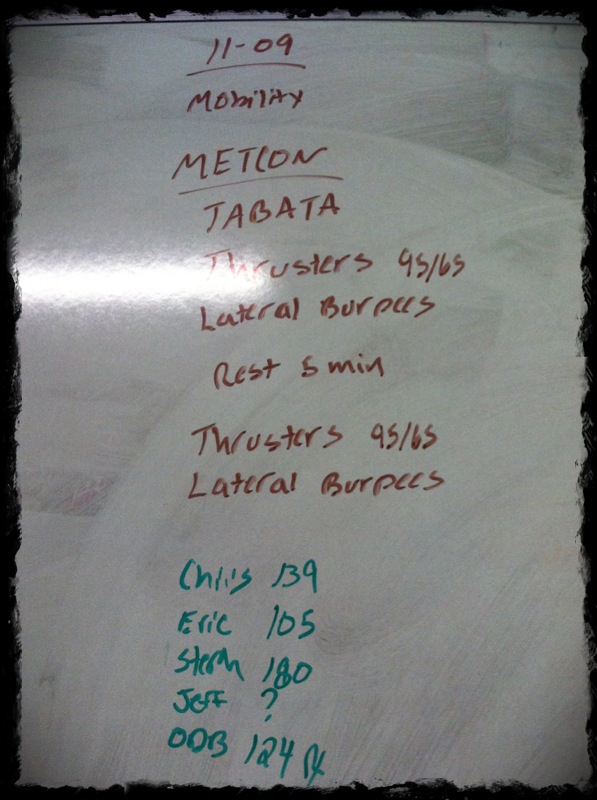 11-09
Mobility
METCON
TABATA
Thrusters 95/65
Lateral Burpees
Rest 5 min
Thrusters 95/65
Lateral Burpees
Chris 139
Eric 105
180
Jeff ?
ODB 124 Rx